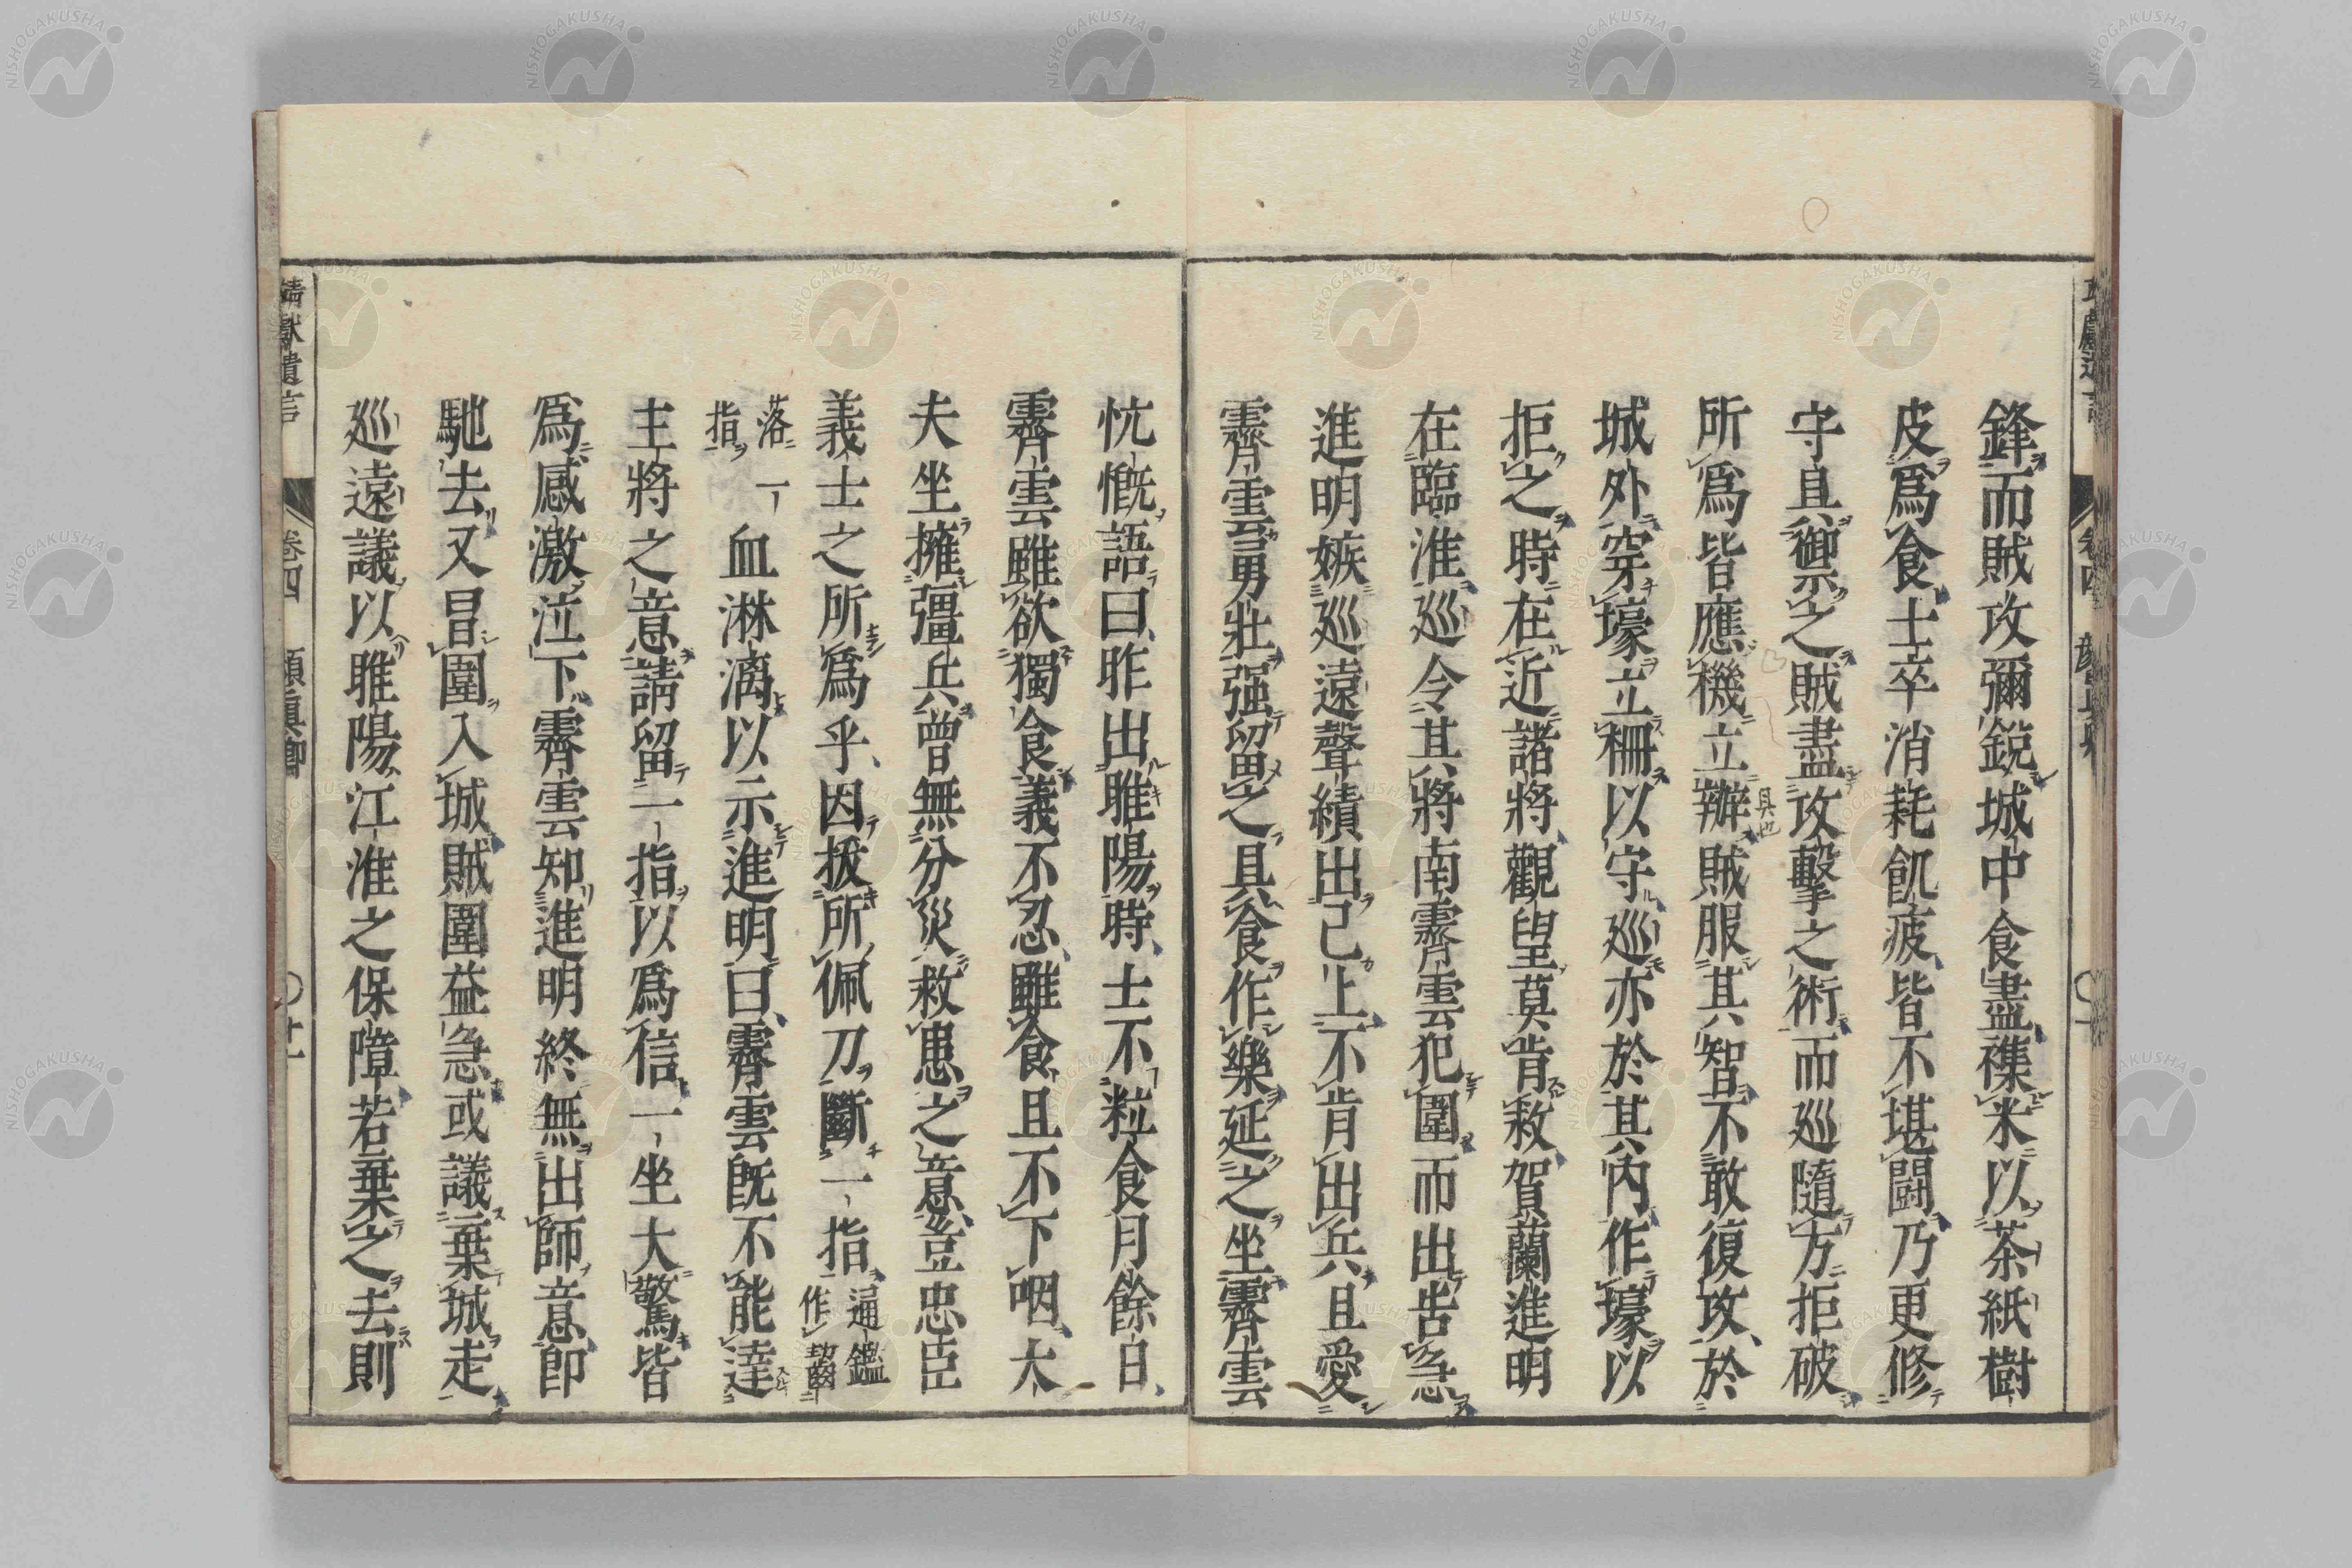 鋒而賊攻彌鋭城中食盡襍米以茶紙樹
皮爲食士卒消耗飢疲皆不堪鬪乃更修
守具禦之賊盡攻擊之術而巡隨方拒破
所爲皆應機立辦賊服其智不敢復攻於
具也
城外穿壕立柵以守巡亦於其內作壕以
拒之時在近諸將觀望莫肯救賀蘭進明
在臨淮巡令其將南霽雲犯圍而出告急
進明嫉巡遠聲績出己上不肯出兵且愛
霽雲勇壯强留之具食作樂延之坐霽雲
忼慨語曰昨出睢陽時士不粒食月餘日
霽雲雖欲獨食義不忍雖食且不下咽大
夫坐擁彊兵曾無分災救患之意豈忠臣
義士之所爲乎因拔所佩刀斷一指通鑑
作齧
落一
指血淋漓以示進明曰霽雲既不能達
主將之意請留一指以爲信一坐大驚皆
爲感激泣下霽雲知進明終無出師意即
馳去又冒圍入城賊圍益急或議棄城走
巡遠議以睢陽江淮之保障若棄之去則
靖獻遺言 卷四 顏眞卿
NISHOGAKUSHA